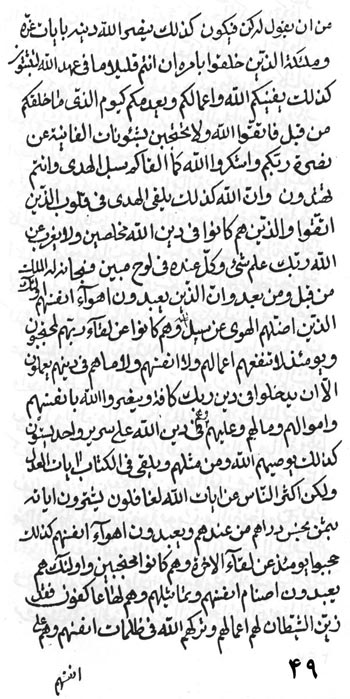 من ان يقول له كن فيكون كذلك ينصر الله دينه بايات عزه
وملئكة الذين خلقوا بامره ان انتم قليلا ما في عهد الله لتثبتون
كذلك يفنيكم الله واعمالكم ويعيدكم كيوم الذي ما خلقكم
من قبل فاتقوا الله ولا تحتجبن بشئونات الفانية عن
نصرة ربكم واشكروا الله كما القاكم سبل الهدى وانتم
لهتدون وان الله كذلك يلقى الهدى في قلوب الذين
اتقوا والذين هم كانوا في دين الله مخلصين ولا يعزب عن
الله ربك علم شئ وكل عنده في لوح مبين فسبحانه له الملك
من قبل ومن بعد وان الذين يعبدون اهوآء انفسهم اولئك
الذين اضلهم الهوى عن سبل الله وهم كانوا عن لقاء ربهم لمحتجبون
ويومئذ لا تنفعهم اعمالهم ولا انفسهم ولا ما هم في دينهم يعملون
الا ان يدخلوا في دين ربك كافة وينصروا الله بانفسهم
واموالهم وما لهم وعليهم وهم في دين الله على سرير واحد يستون
كذلك يوصيهم الله ومن مثلهم ويلقى في الكتاب ايات العدل
ولكن اكثر الناس عن ايات الله لغافلون يشترون اياته
بثمن بخس دراهم من عندهم ويعبدون اهوآء انفسهم كذلك
حجبوا يومئذ عن لقاء الاخرة وهم كانوا محتجبين واولئك هم
يعبدون اصنام انفسهم وتماثيلهم وهم لها عاكفون فقل
زين الشيطان لهم اعمالهم وتركهم الله في ظلمات انفسهم وهم على
انفسهم
٤٩